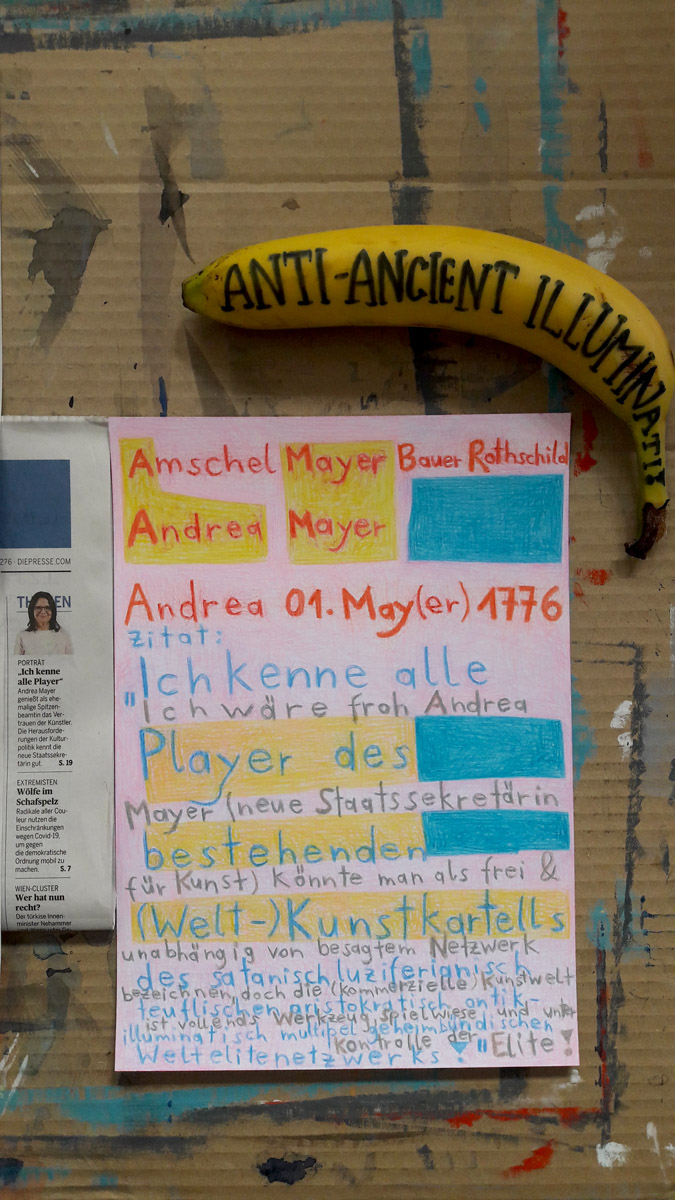 ANTI-ANCIENT ILLUMINATI!
Amschel Mayer Bauer Rothschild
Andrea Mayer
Andrea 01. May(er) 1776
Zitat:
"Ich kenne alle
Ich wäre froh Andrea
Player des
Mayer (neue Staatssekretärin
bestehenden
für Kunst) könnte man als frei &
(Welt-)Kunstkartells
unabhängig von besagtem Netzwerk
des satanisch luziferianisch
bezeichnen, doch die (kommerzielle) Kunstwelt
teuflischen aristokratisch antik-
ist vollends Werkzeug, Spielwiese und unter
illuminatisch multipel geheimbündischen
Kontrolle der "Elite!
Weltelitenetzwerks
276 · DIEPRESSE.COM
TH EN
PORTRÄT
„Ich kenne
alle Player“
Andrea Mayer
genießt als ehe-
malige Spitzen-
beamtin das Ver-
trauen der Künstler.
Die Herausforde-
rungen der Kultur-
politik kennt die
neue Staatssekre-
tärin gut. S. 19
EXTREMISTEN
Wölfe im
Schafspelz
Radikale aller Cou-
leur nutzen die
Einschränkungen
wegen Covid-19,
um gegen
die demokratische
Ordnung mobil zu
machen. S. 7
WIEN-CLUSTER
Wer hat nun
recht?
Der türkise Innen-
minister Nehammer